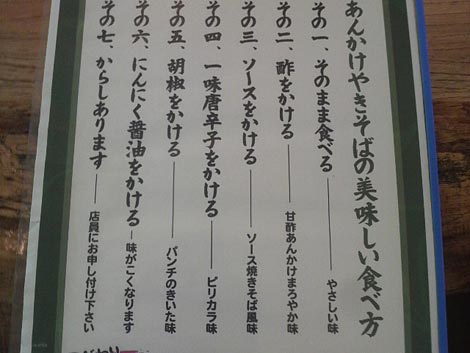 あんかけやきそばの美味しい食べ方
その一、そのまま食べる――やさしい味
その二、酢をかける――甘酢あんかけまろやか味
その三、ソースをかける――ソース焼きそば風味
その四、一味唐辛子をかける――ピリカラ味
その五、胡椒をかける――パンチのきいた味
その六、にんにく醤油をかける―味がこくなります
その七、からしあります――店員にお申し付け下さい